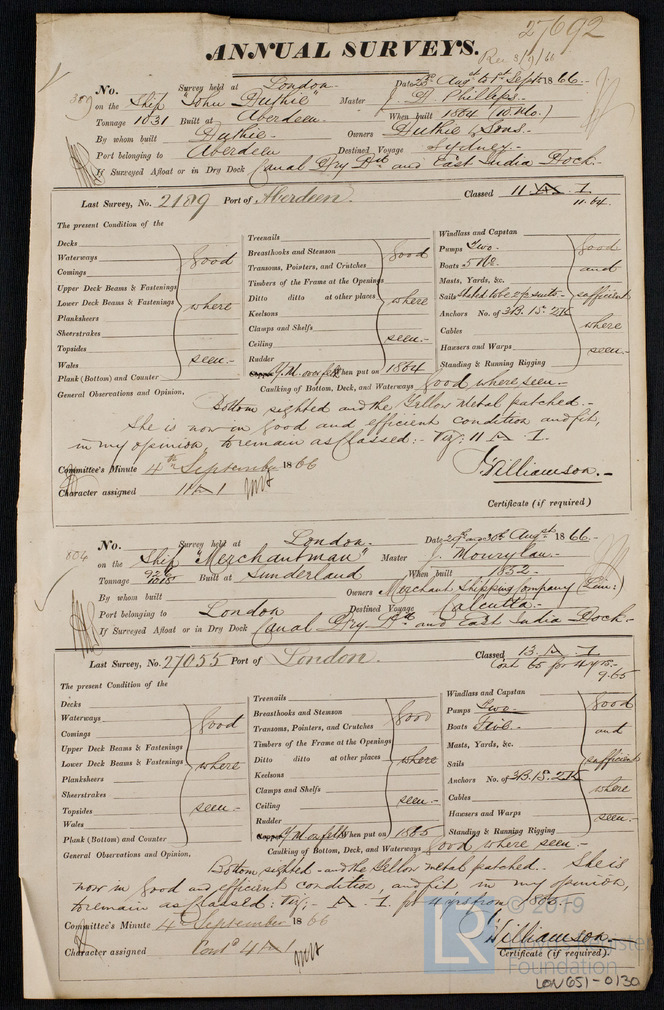 27692
ANNUAL SURVEYS.
Rec 3/9/66
No. Survey held at London. Date 23rd Augst to 1st Sept 1866.
309 on the Ship "John Duthie" Master J. Phillips.
Tonnage 1031 Built at Aberdeen. When built 1864 (10. Mo.)
By whom built Duthie. Owners Duthie, Sons.
Port belonging to Aberdeen Destined Voyage Sydney.
If Surveyed Afloat or in Dry Dock Canal Dry Dk and East India Dock.
Last Survey, No. 2189 Port of Aberdeen. Classed 11 A. 1
11.64.
The present Condition of the
Decks
Waterways
Comings
Upper Deck Beams & Fastenings
Lower Deck Beams & Fastenings
Planksheers
Sheerstrakes
Topsides
Wales
Plank (Bottom) and Counter
good
where
seen.-
Treenails
Breasthooks and Stemson
Transoms, Pointers, and Crutches
Timbers of the Frame at the Openings
Ditto ditto at other places
Keelsons
Clamps and Shelfs
Ceiling
Rudder
Y.M. over felt When put on 1864
good
where
seen.-
Windlass and Capstan
Pumps Two.
Boats 5
Masts, Yards, &c.
Sails Stated to be 2 suits.-
Anchors No. of 3B. 1S. 2K
Cables
Hawsers and Warps
Standing & Running Rigging
good
and
sufficient
where
seen.-
Caulking of Bottom, Deck, and Waterways good where seen.-
General Observations and Opinion,
Bottom sighted and the Yellow Metal patched.-
She is now in good and efficient condition and fit,
in my opinion, to remain as Classed:- viz: 11 A. 1.
Committee's Minute 4th September 1866
J. Williamson.-
Character assigned 11 A 1
Certificate (if required)
No. Survey held at London. Date 29th and 30th Augst 1866.
804 on the Ship "Merchantman" Master J. Mowrylan.
Tonnage 1018 Built at Sunderland When built 1852.
By whom built Owners Merchant Shipping Company (Lim:)
Port belonging to London Destined Voyage Calcutta.
If Surveyed Afloat or in Dry Dock Canal Dry Dk and East India Dock.-
Last Survey, No. 27055 Port of London. Classed 13. A. 1
Cont 65 for 4 yrs.-
9.65
The present Condition of the
Decks
Waterways
Comings
Upper Deck Beams & Fastenings
Lower Deck Beams & Fastenings
Planksheers
Sheerstrakes
Topsides
Wales
Plank (Bottom) and Counter
good
where
seen.-
Treenails
Breasthooks and Stemson
Transoms, Pointers, and Crutches
Timbers of the Frame at the Openings
Ditto ditto at other places
Keelsons
Clamps and Shelfs
Ceiling
Rudder
Y.M. on felt When put on 1865
good
where
seen.-
Windlass and Capstan
Pumps Two.
Boats Five.
Masts, Yards, &c.
Sails
Anchors No. of 3B. 1S. 2K
Cables
Hawsers and Warps
Standing & Running Rigging
good
and
sufficient
where
seen.-
Caulking of Bottom, Deck, and Waterways good where seen.-
General Observations and Opinion,
Bottom sighted - and the Yellow metal patched. She is
now in good and efficient condition, and fit, in my opinion,
to remain as Classed: viz;- A. 1. for 4 yrs from 1865.
Committee's Minute 4th September 1866
J. Williamson.
Character assigned Contd 4 A 1
Certificate (if required).
© 2019
LR
Foundation
LON651-0130